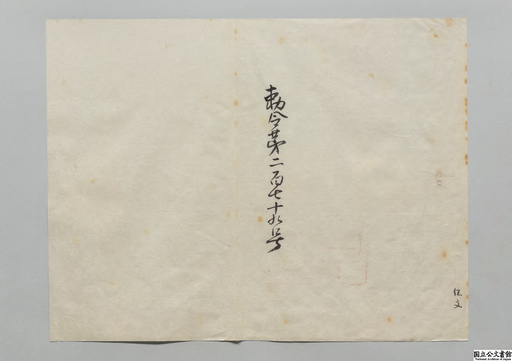 勅令第二百七十九号
国立公文書館
National Archives of Japan